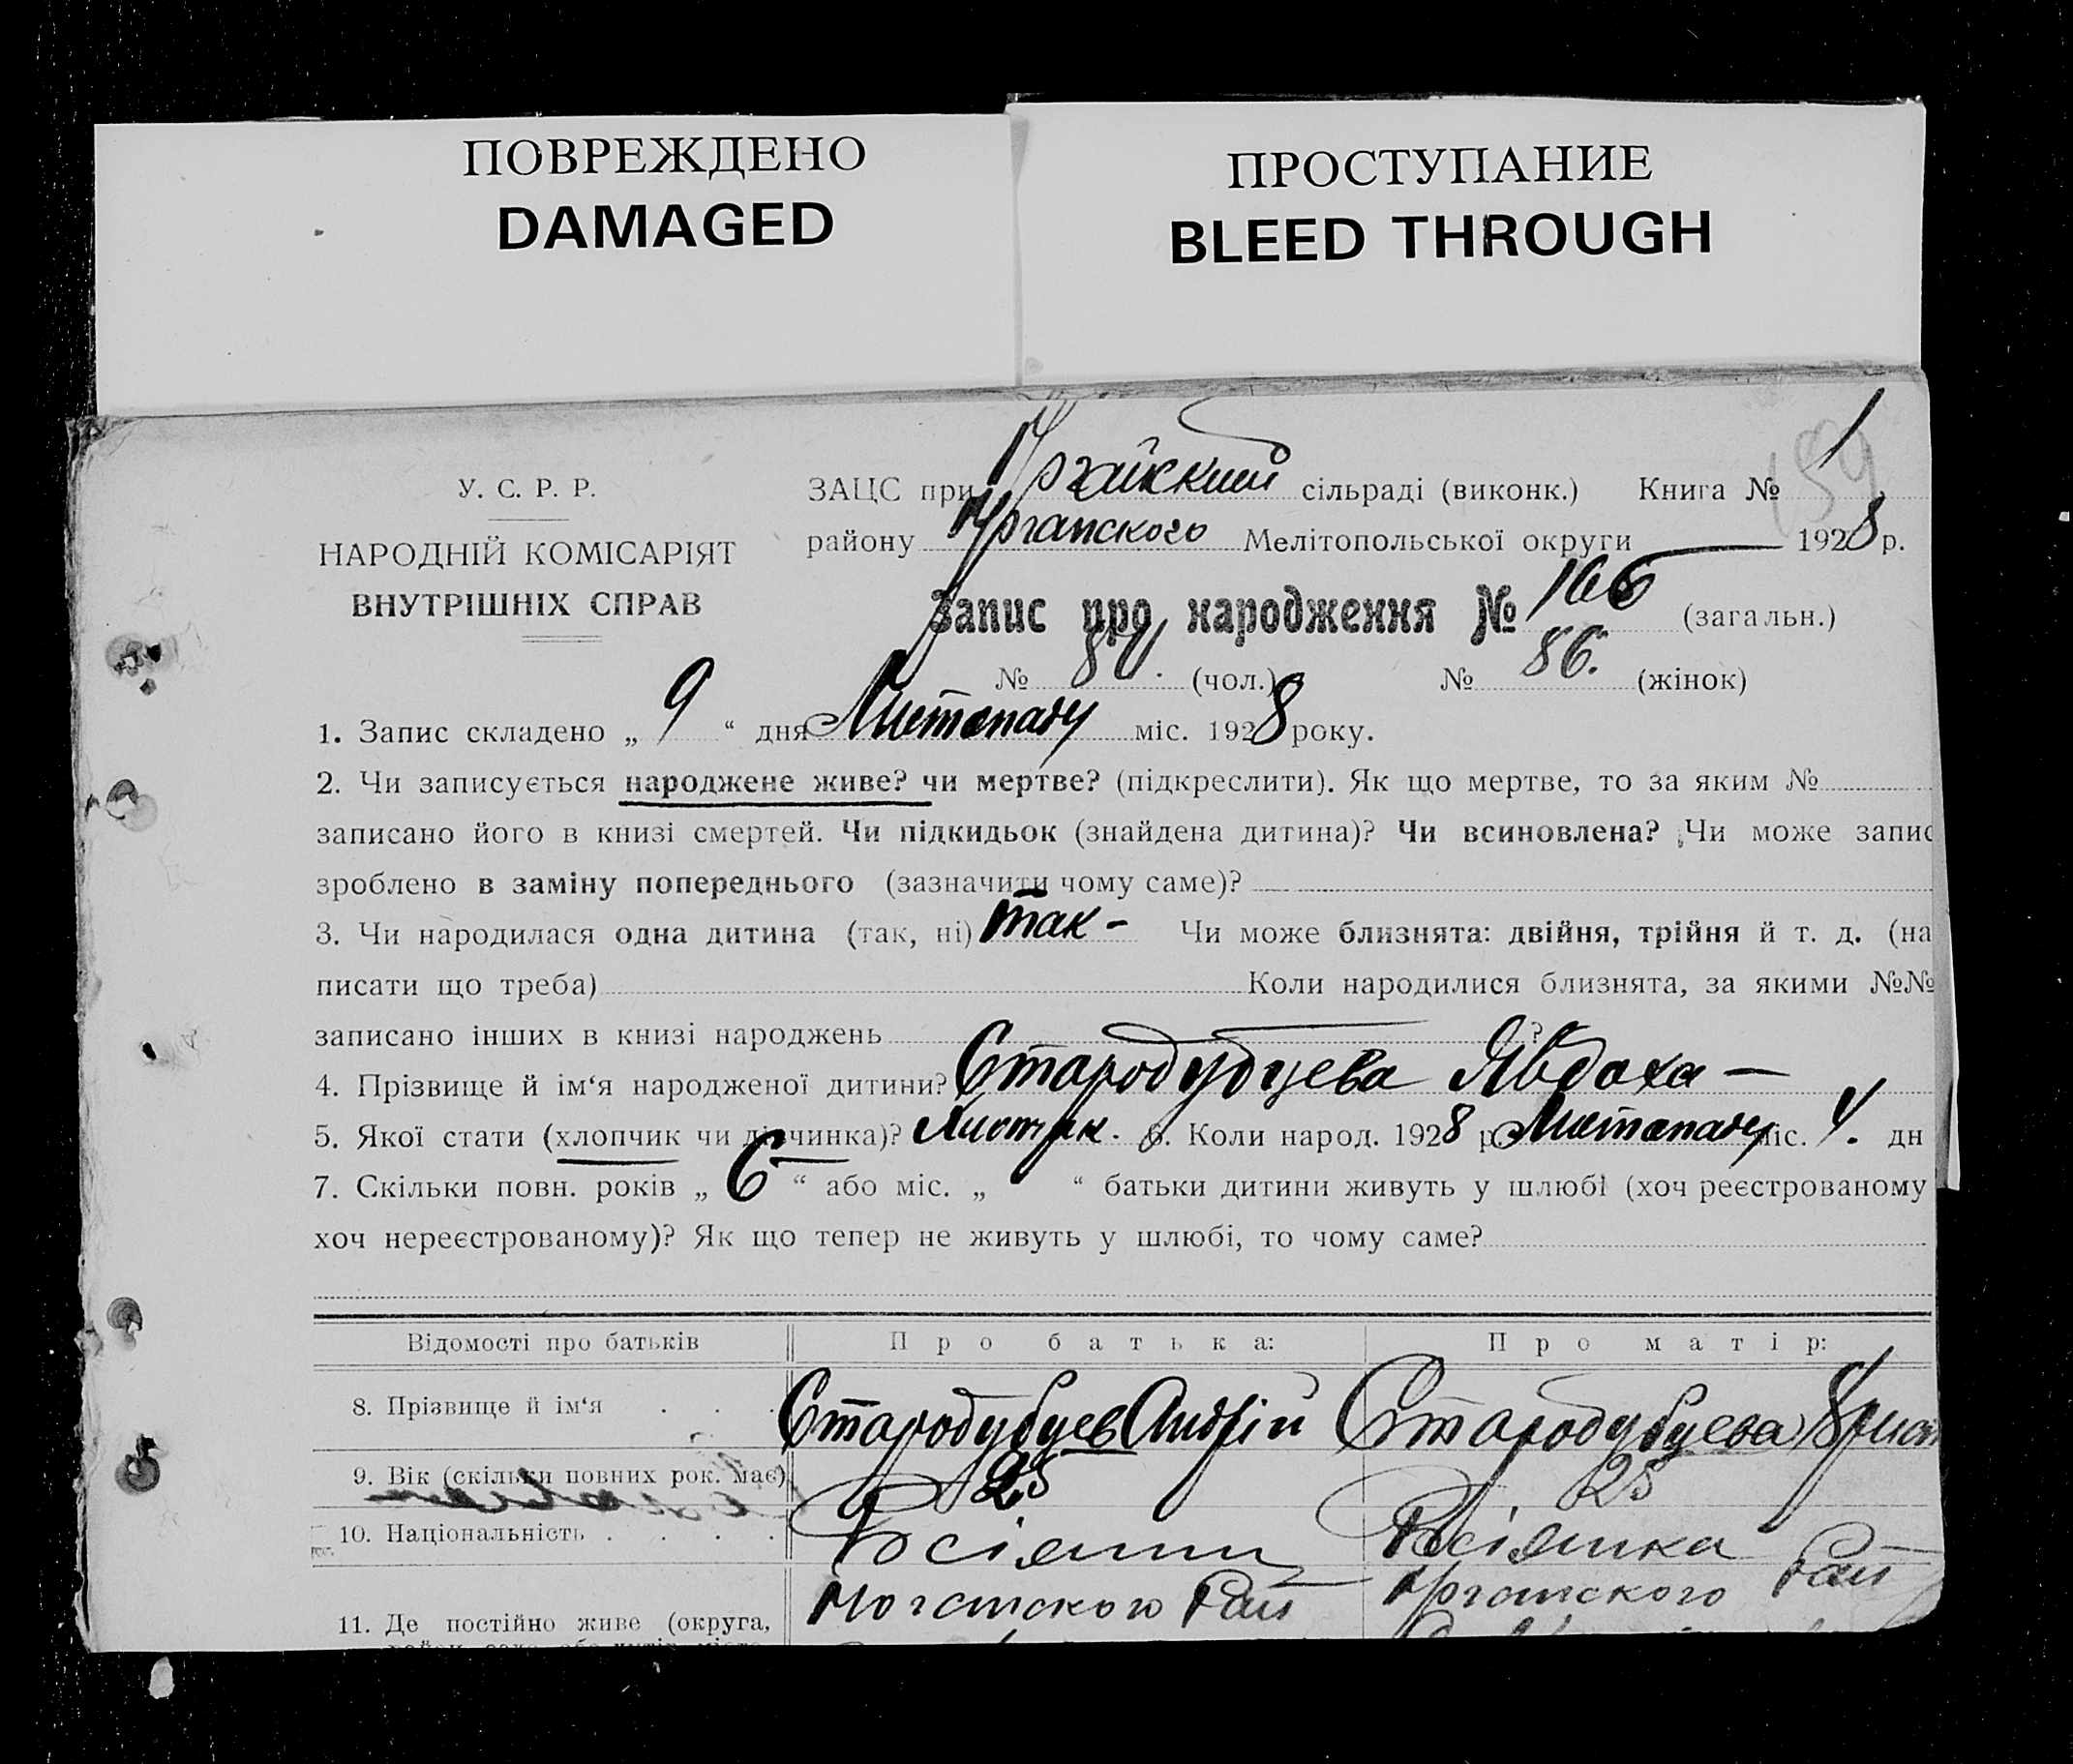 ПОВРЕЖДЕНО
DAMAGED
ПРОСТУПАНИЕ
BLEED THROUGH
У. С. Р. Р.
НАРОДНІЙ КОМІСАРІЯТ
ВНУТРІШНІХ СПРАВ
ЗАЦС при сільраді (виконк.) Книга № 1
району Мелітопольської округи 1928 р.
Запис про народження № 166 (загальн.)
№ (чол.) № 86. (жінок)
1. Запис складено „ 9 “ дня Листопаду міс. 1928 року.
2. Чи записується народжене живе? чи мертве? (підкреслити). Як що мертве, то за яким №
записано його в книзі смертей. Чи підкидьок (знайдена дитина)? Чи всиновлена? Чи може запис
зроблено в заміну попереднього (зазначити чому саме)?
3. Чи народилася одна дитина (так, ні) так - Чи може близнята: двійня, трійня й т. д. (на
писати що треба) Коли народилися близнята, за якими №№
записано інших в книзі народжень ?
4. Прізвище й ім‘я народженої дитини? Стародубцева Явдоха —
5. Якої стати (хлопчик чи дівчинка)? 6. Коли народ. 1928 р. Листопаду міс. 4. дн
7. Скільки повн. років „ 6 “ або міс. „ “ батьки дитини живуть у шлюбі (хоч реєстрованому
хоч нереєстрованому)? Як що тепер не живуть у шлюбі, то чому саме?
Відомості про батьків Про батька: Про матір:
8. Прізвище й ім‘я . . . Стародубцев Андрій Стародубцева
9. Вік (скільки повних рок. має) 25 25
10. Національність . . . . Росіянин Росіянка
11. Де постійно живе (округа, Рай Рай